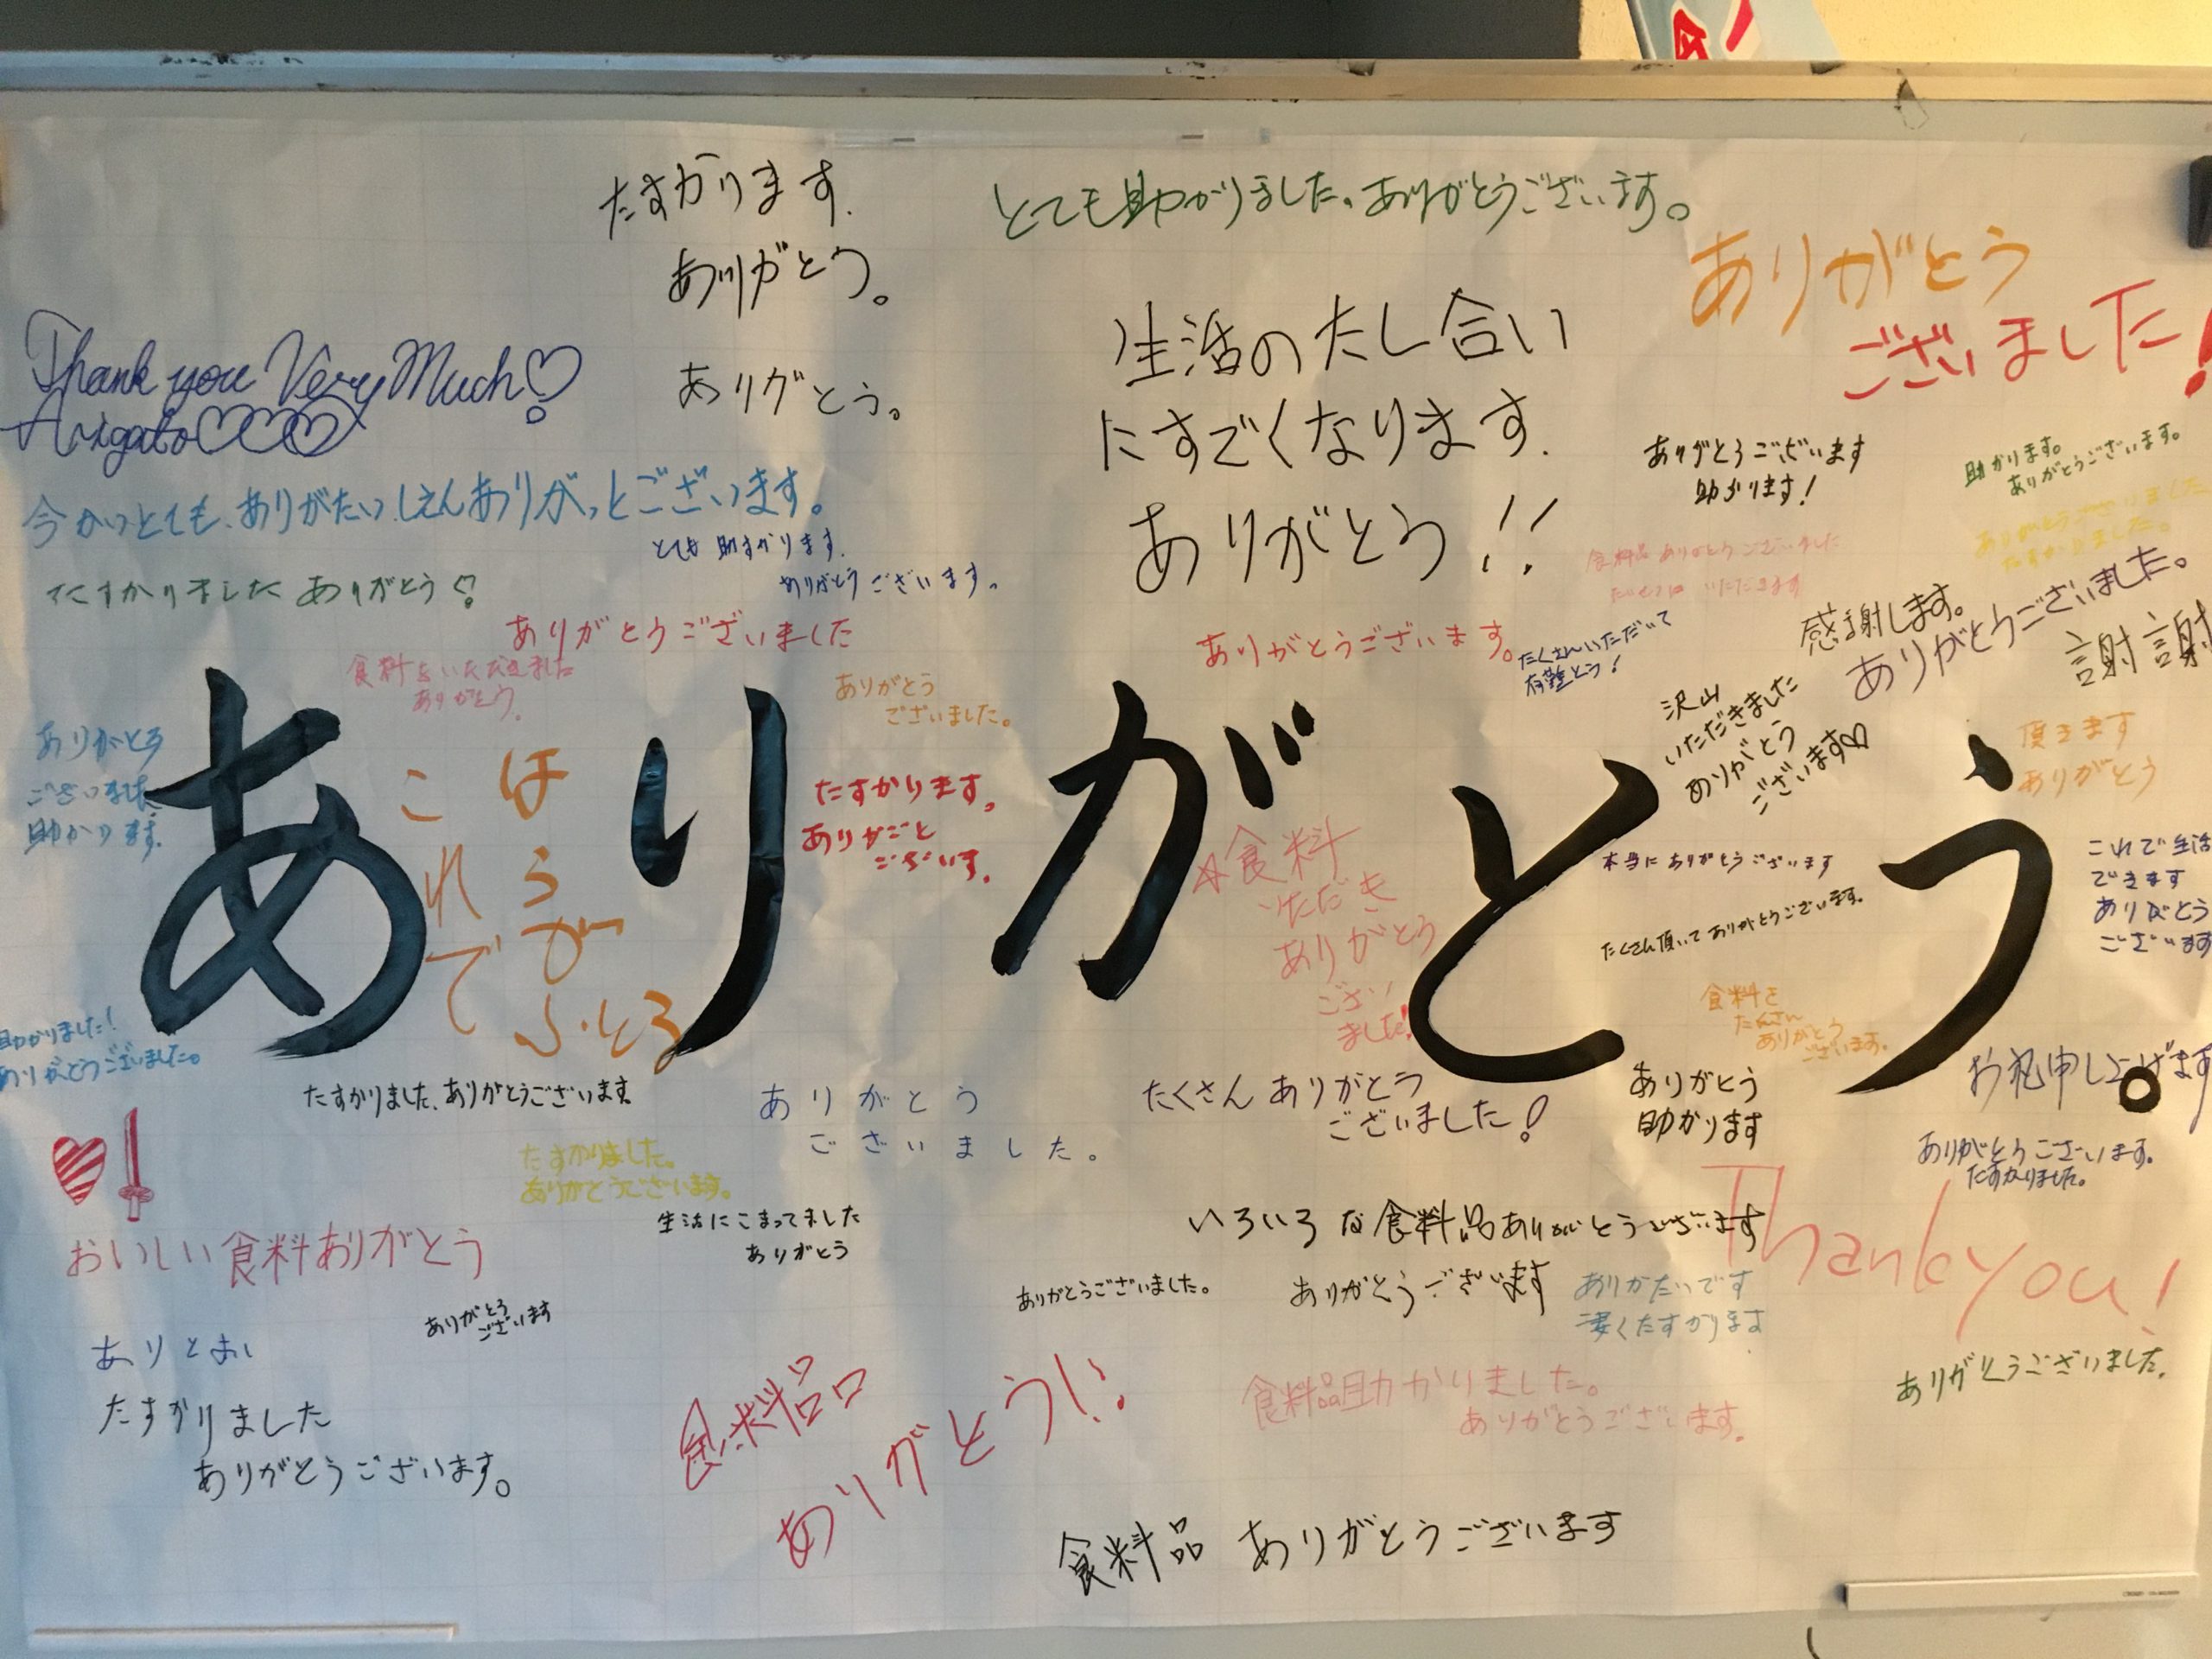 たすかります.
ありがとう。
ありがとう。
とても助かりました。ありがとうございます。
ありがとう
ございました!
Thank you Very Much♡
Arigato♡♡♡
生活のたし合い
たすごくなります.
ありがとう!!
ありがとうございます
助かります!
助かります。
ありがとうございます。
ありがとうございました
たすかりました。
ありがとうございます。
とても助すかります.
ありがとうございます。
たすかりました ありがとう
食料品ありがとうございました
いただきます
ありがとうございました
ありがとうございます。
たくさんいただいて
有難とう!
感謝します。
ありがとうございました。
謝謝
食料をいただきました
ありがとう.
ありがとう
ございました。
沢山
いただきました
ありがとう
ございます♡
頂きます
ありがとう
ありがとう
ございました
助かります.
ありがとう。
これで
はらが
ふとる
たすかります。
ありがごと
ございます.
☆食料
いただき
ありがとう
ござい
ました!
本当にありがとうございます
たくさん頂いてありがとうございます.
これで生活
できます
ありがとう
ございます
食料を
たくさん
ありがとう
ございます.
助かりました!
ありがとうございました。
たすかりました.ありがとうございます.
ありがとう
ございました。
たくさんありがとう
ございました!
ありがとう
助かります
お礼申し上げます
ありがとうございます.
たすかりました。
たすかりました。
ありがとうございます。
生活にこまってました
ありがとう
いろいろな食料品ありがとうございます
Thank you!
おいしい食料ありがとう
ありがとう
ございます
ありがとうございました。
ありがとうございます
ありがたいです
凄くたすかります
ありがとうございました.
たすかりました
ありがとうございます。
食料品
ありがとう!!
食料品助かりました。
ありがとうございます.
食料品 ありがとうございます